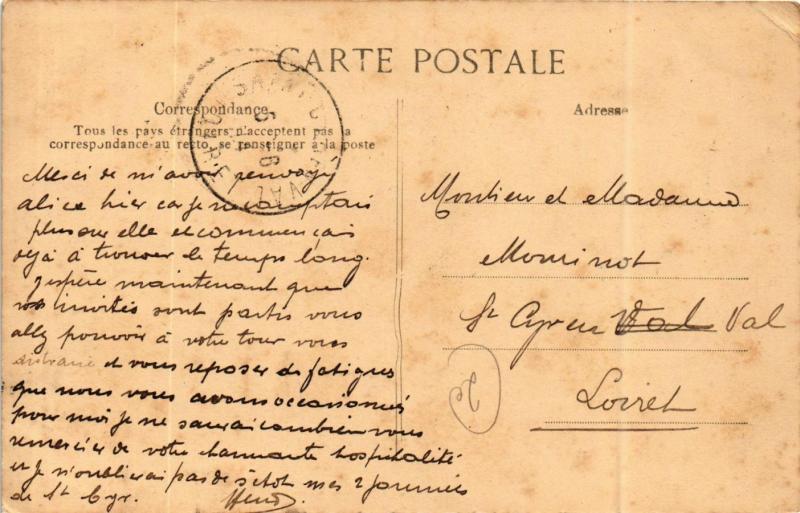 CARTE POSTALE
Correspondance
Tous les pays étrangers n'acceptent pas la
correspondance au recto, se renseigner à la poste
Merci de m'avoir renvoyé
alice hier car je ne comptais
plus sur elle et commençais
déjà à trouver le temps long.
J'espère maintenant que
vos invités sont partis vous
allez pouvoir à votre tour vous
distraire et vous reposer des fatigues
que nous vous avons occasionnés
pour moi je ne saurai combien vous
remercier de votre charmante hospitalité
et je n'oublierai pas de sitot mes 2 journées
de St Cyr. Henri
Adresse
Monsieur et Madame
Mominot
St Cyr en Val Val
Loiret